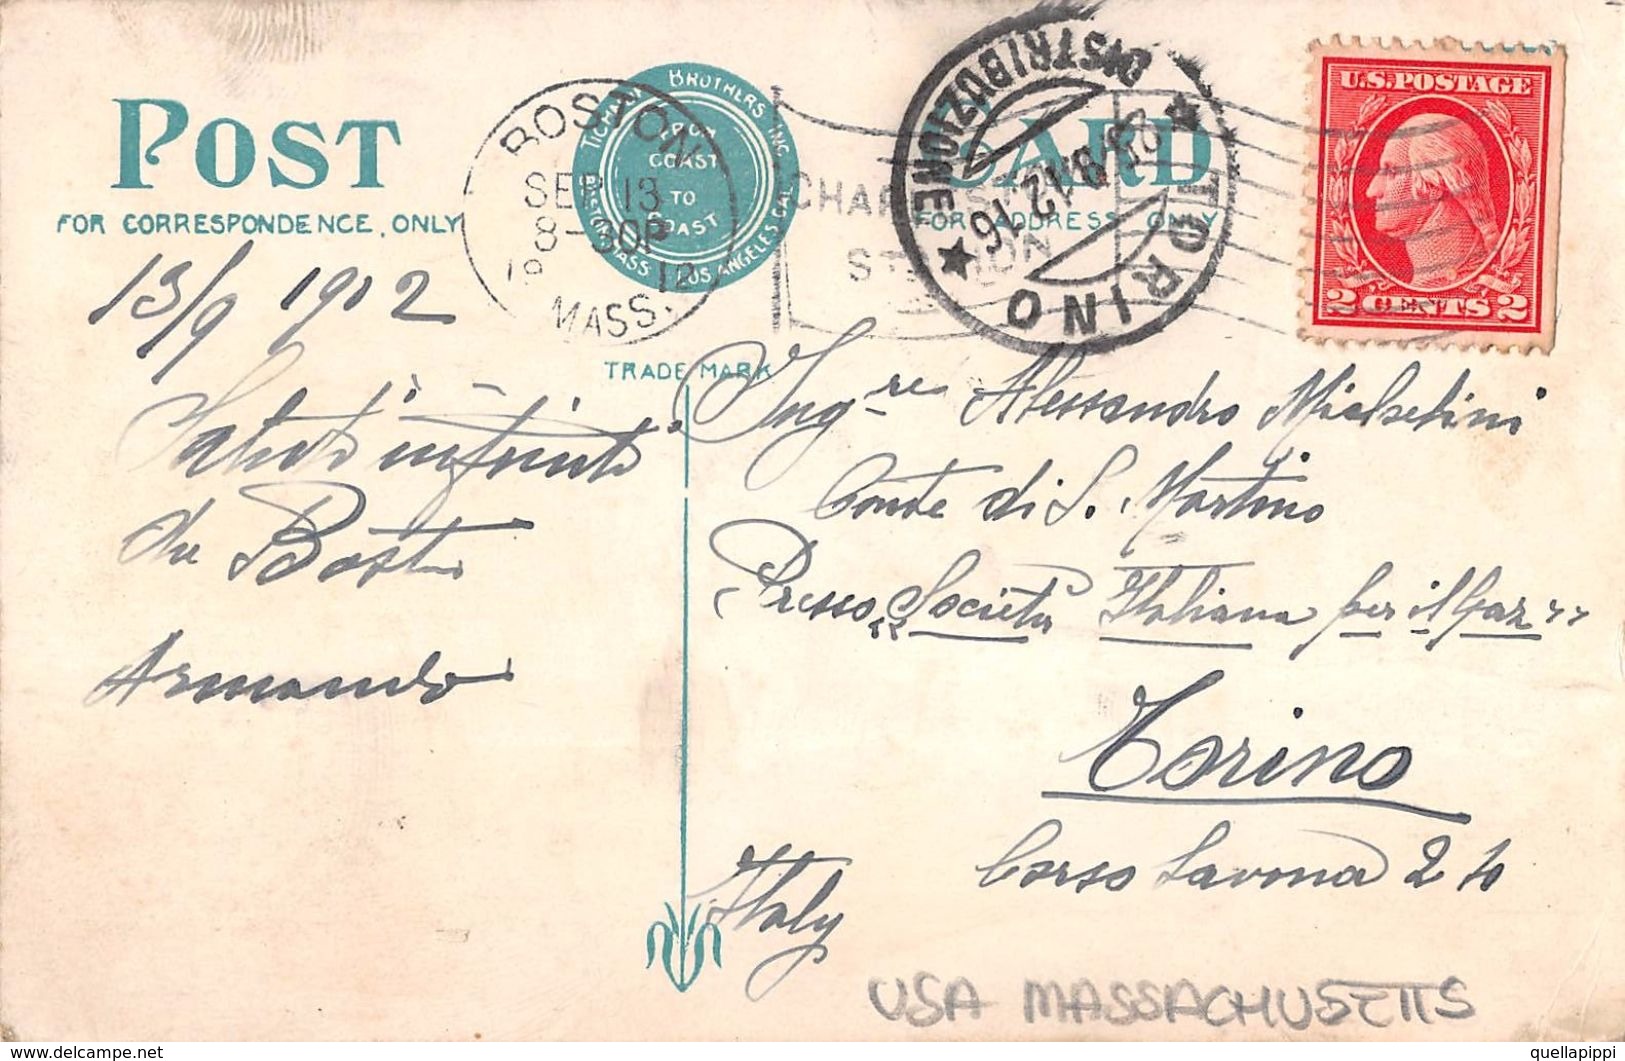 POST CARD
FOR CORRESPONDENCE, ONLY
FOR ADDRESS ONLY
TICHNOR BROTHERS INC.
BOSTON MASS. LOS ANGELES CAL.
FROM
COAST
TO
COAST
TRADE MARK
BOSTON
SEP 13
8-30P
1912
MASS.
STATION
TORINO
DISTRIBUZIONE
U.S. POSTAGE
2 CENTS 2
13/9 1912
Saluti infiniti
da Boston
Armando
Ing.re Alessandro
Conte di S. Martino
Presso "Società Italiana per il Gaz"
Torino
Corso Savona 24
Italy
USA MASSACHUSETTS
https://www.delcampe.net
quellapippi